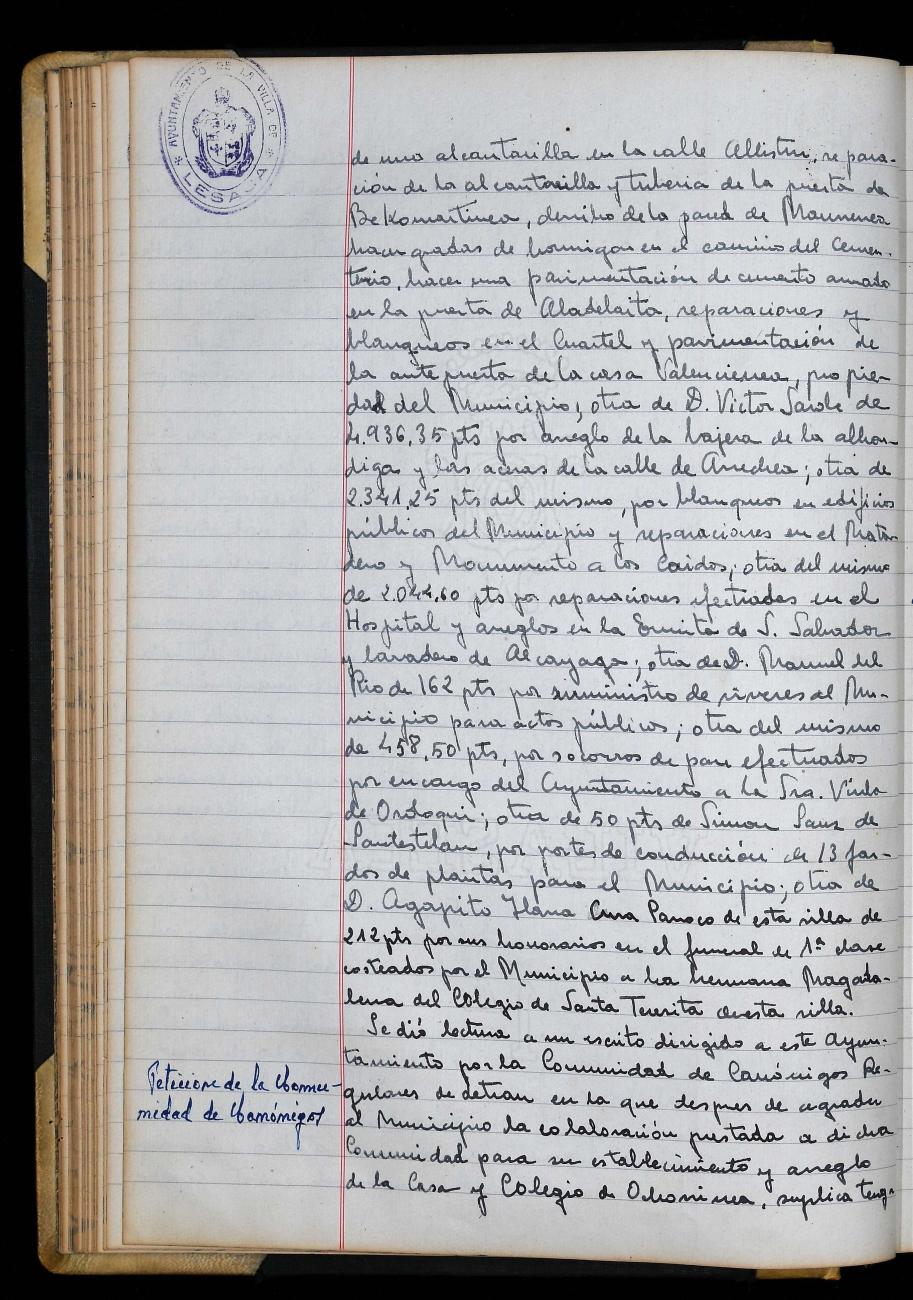 AYUNTAMIENTO DE LA VILLA DE
LESACA
de una alcantarilla en la calle Albistur, repara-
ción de la alcantarilla y tuberia de la puerta de
Bekomartinea, derribo de la pared de Maunenea
hacer gradas de hormigon en el camino del Cemen-
terio, hacer una pavimentación de cemento armado
en la puerta de Aladelaita, reparaciones y
blanqueos en el Cuartel y pavimentación de
la antepuerta de la casa Valencienea, propie-
dad del Municipio; otra de D. Victor Sarobe de
4.936,35 pts por arreglo de la bajera de la alhon-
diga y las aceras de la calle de Arrechea; otra de
2.341,25 pts del mismo, por blanqueos en edificios
públicos del Municipio y reparaciones en el Mata-
dero y Monumento a los Caidos; otra del mismo
de 2.044,60 pts por reparaciones efectuadas en el
Hospital y arreglos en la Ermita de S. Salvador
y lavadero de Alcayaga; otra de D. Manuel del
Rio de 162 pts por suministro de viveres al Mu-
nicipio para actos públicos; otra del mismo
de 458,50 pts, por socorros de pan efectuados
por encargo del Ayuntamiento a la Sra. Viuda
de Ordoqui; otra de 50 pts de Simon Sanz de
Santesteban, por portes de conducción de 13 far-
dos de plantas para el Municipio; otra de
D. Agapito Cura Parroco de esta villa de
212 pts por sus honorarios en el funeral de 1ª clase
costeados por el Municipio a la hermana Magada-
lena del Colegio de Santa Teresita de esta villa.
Se dió lectura a un escrito dirigido a este Ayun-
tamiento por la Comunidad de Canónigos Re-
gulares de Letran en la que despues de agradecer
al Municipio la colaboración prestada a dicha
Comunidad para su establecimiento y arreglo
de la Casa y Colegio de Ochoninea, suplica teng-
Petición de la Comu-
nidad de Canónigos